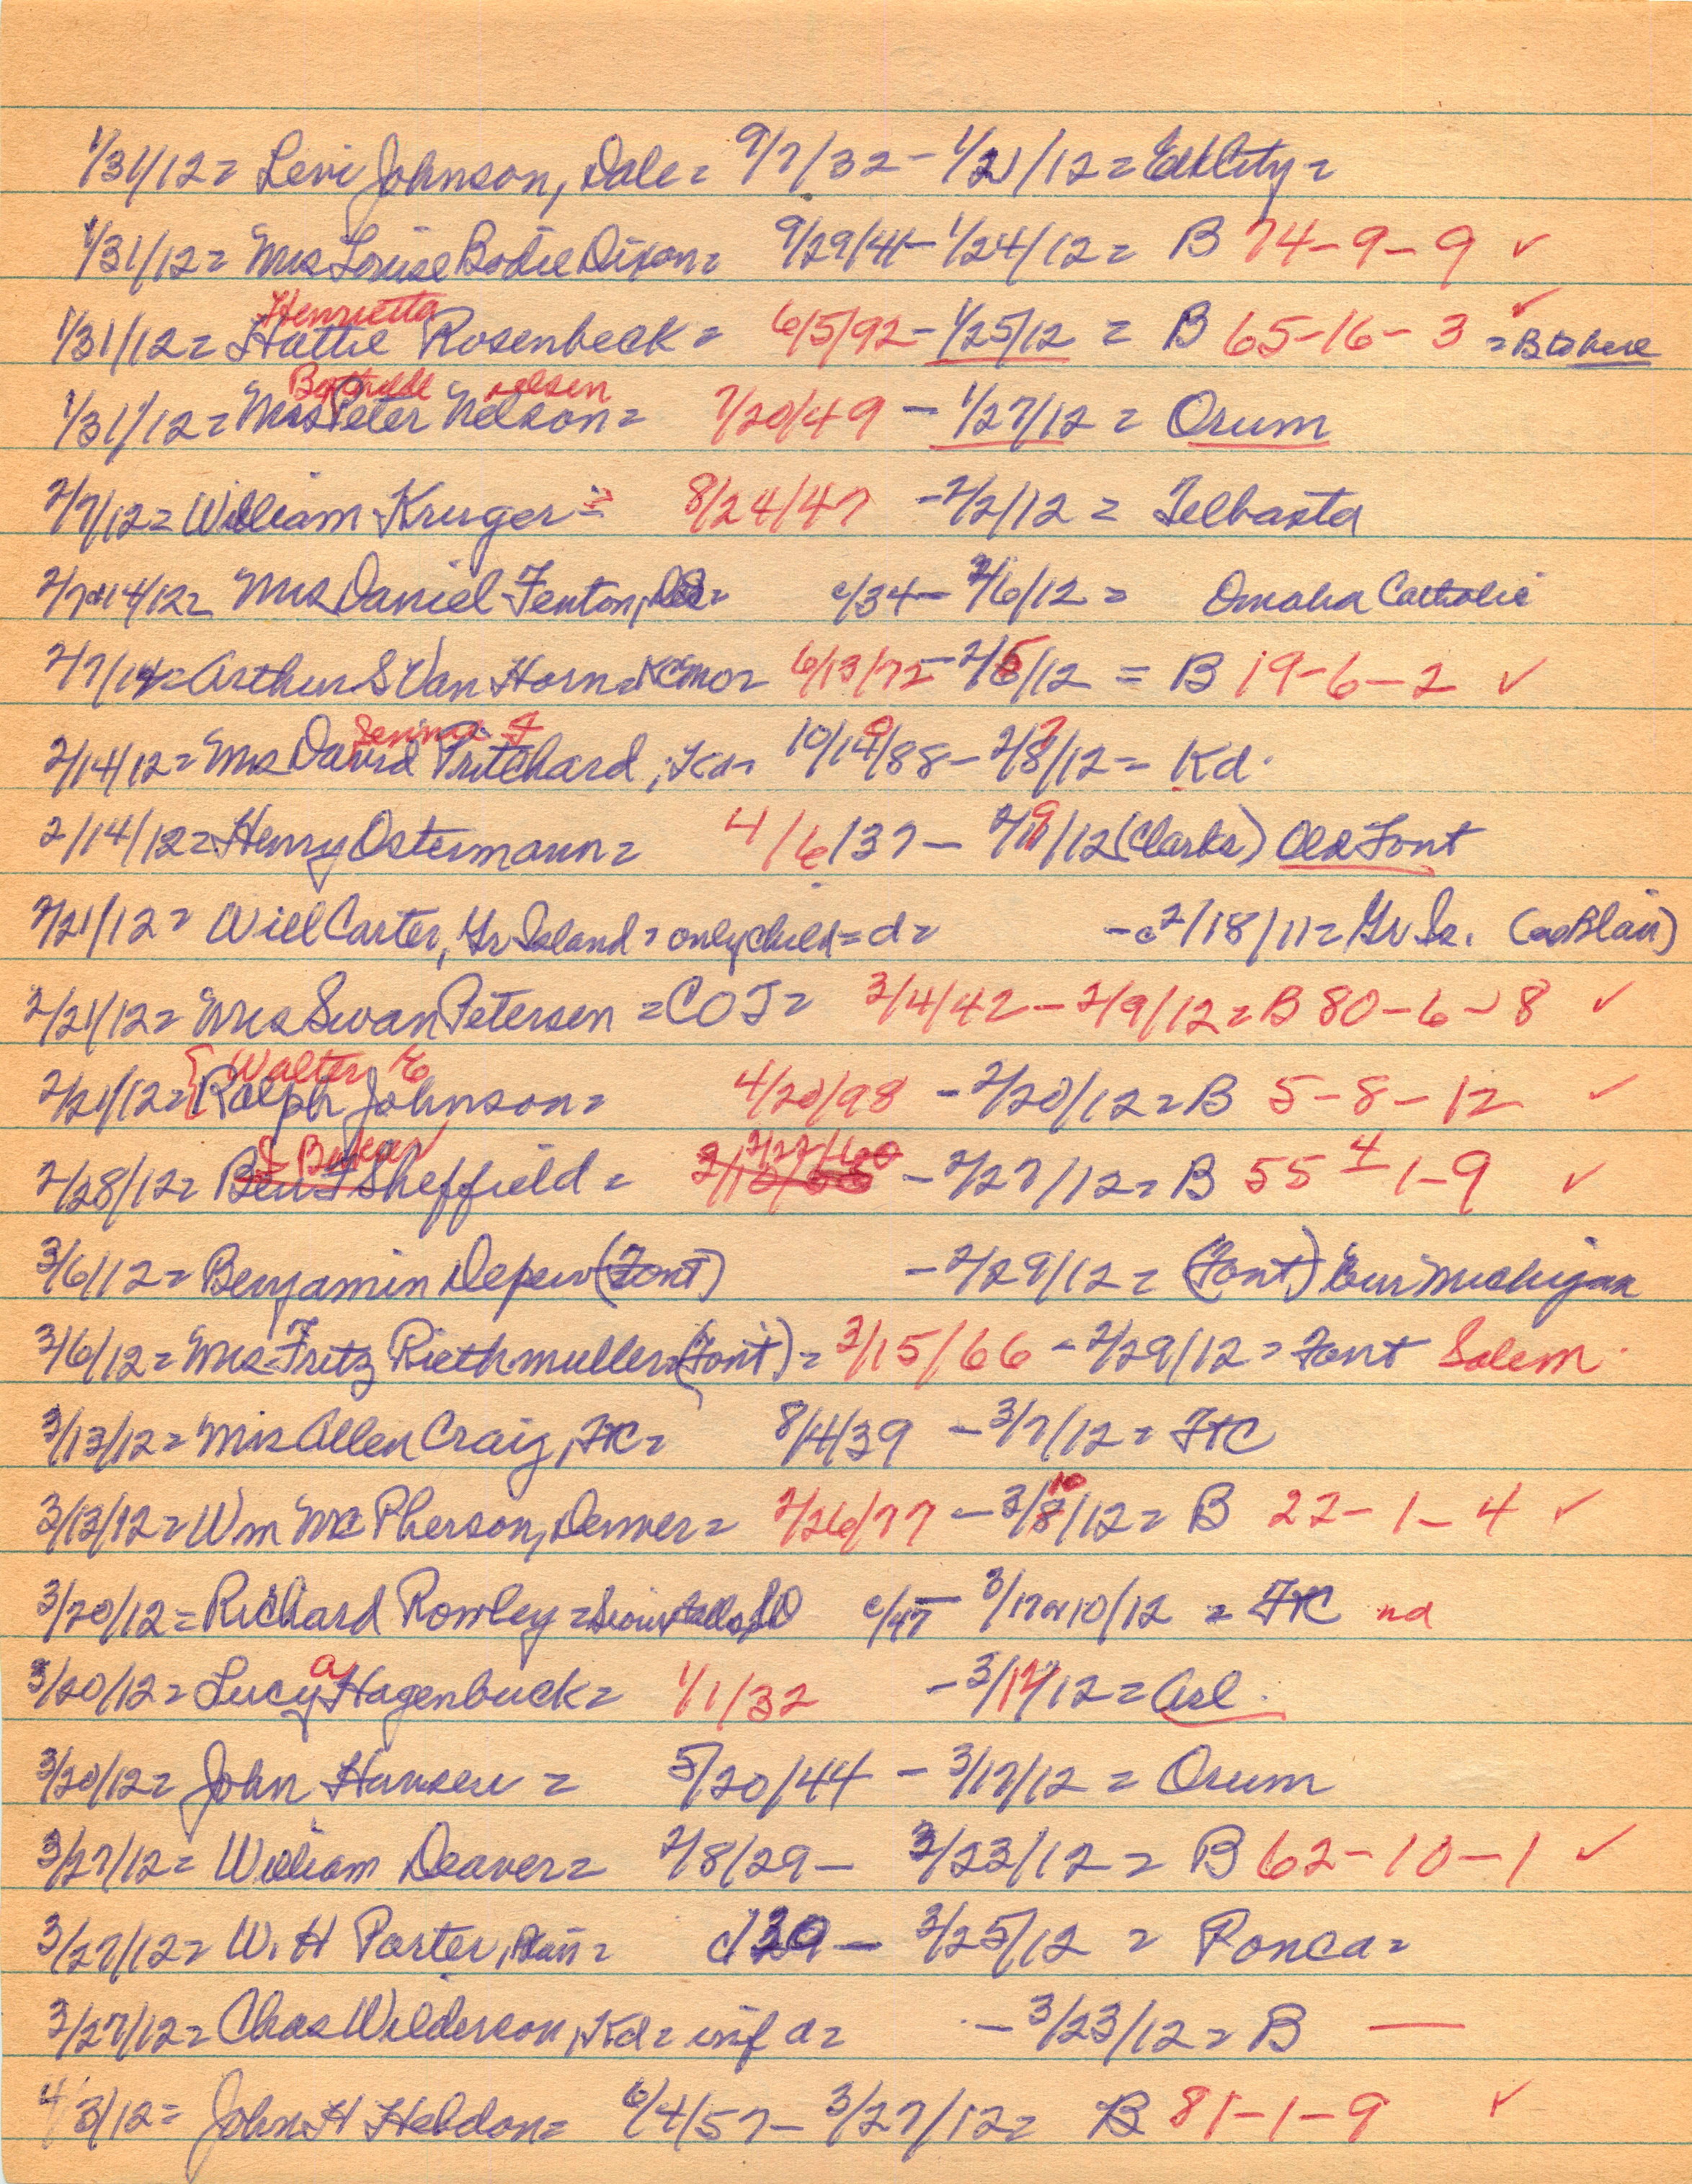 1/31/12 = Levi Johnson, Dale = 9/7/32 - 1/21/12 = Elk City =
1/31/12 = Mrs Louise Bodie Dixon = 9/29/41 - 1/24/12 = B 74-9-9 ✓
Henrietta
1/31/12 = Hattie Rosenbeck = 6/5/92 - 1/25/12 = B 65-16-3 ✓ = B to here
elsen
1/31/12 = Mrs Peter Nelson = 7/20/49 - 1/27/12 = Orum
2/7/12 = William Kruger = 8/24/47 - 2/2/12 = Telbasta
2/7+14/12 = Mrs Daniel Fenton, c/34 - 2/6/12 = Omaha Catholic
2/7/12 = Arthur S Van Horn = 6/13/72 - 2/5/12 = B 19-6-2 ✓
2/14/12 = Mrs David Pritchard, 10/10/88 - 2/7/12 = Kd.
2/14/12 = Henry Ostermann = 4/6/37 - 2/9/12 (Clarks) Old Font
2/21/12 = Will Carter, Gr Island = only child = d = - c 2/18/11 = Gr Is. (Blair)
2/21/12 = Mrs Swan Petersen = COJ = 2/4/42 - 2/9/12 = B 80-6-8 ✓
Walter E
2/21/12 = Ralph Johnson = 4/20/98 - 2/20/12 = B 5-8-12 ✓
2/27/60
2/28/12 = Ben F Sheffield = - 2/27/12 = B 55-1-9 4 ✓
3/6/12 = Benjamin Depew (Font) - 2/29/12 = (Font) Michigan
3/6/12 = Mrs Fritz Riethmuller (Font) = 2/15/66 - 2/29/12 = Font Salem.
3/13/12 = Mrs Allen Craig, FtC = 8/4/39 - 3/7/12 = FtC
10
3/13/12 = Wm McPherson, Denver = 2/26/77 - 3/8/12 = B 22-1-4 ✓
3/20/12 = Richard Rowley = Sioux Falls SD c/47 - 3/17 or 10/12 = FtC nd
a
3/20/12 = Lucy Hagenbuck = 1/1/32 - 3/14/12 = Arl.
3/20/12 = John Hansen = 5/20/44 - 3/17/12 = Orum
3/27/12 = William Deaver = 2/8/29 - 3/23/12 = B 62-10-1 ✓
3/27/12 = W. H Porter, = c/39 - 3/25/12 = Ponca =
3/27/12 = Chas Wilderson, Kd = inf d = - 3/23/12 = B —
4/3/12 = John H Heldon = 6/4/57 - 3/27/12 = B 81-1-9 ✓